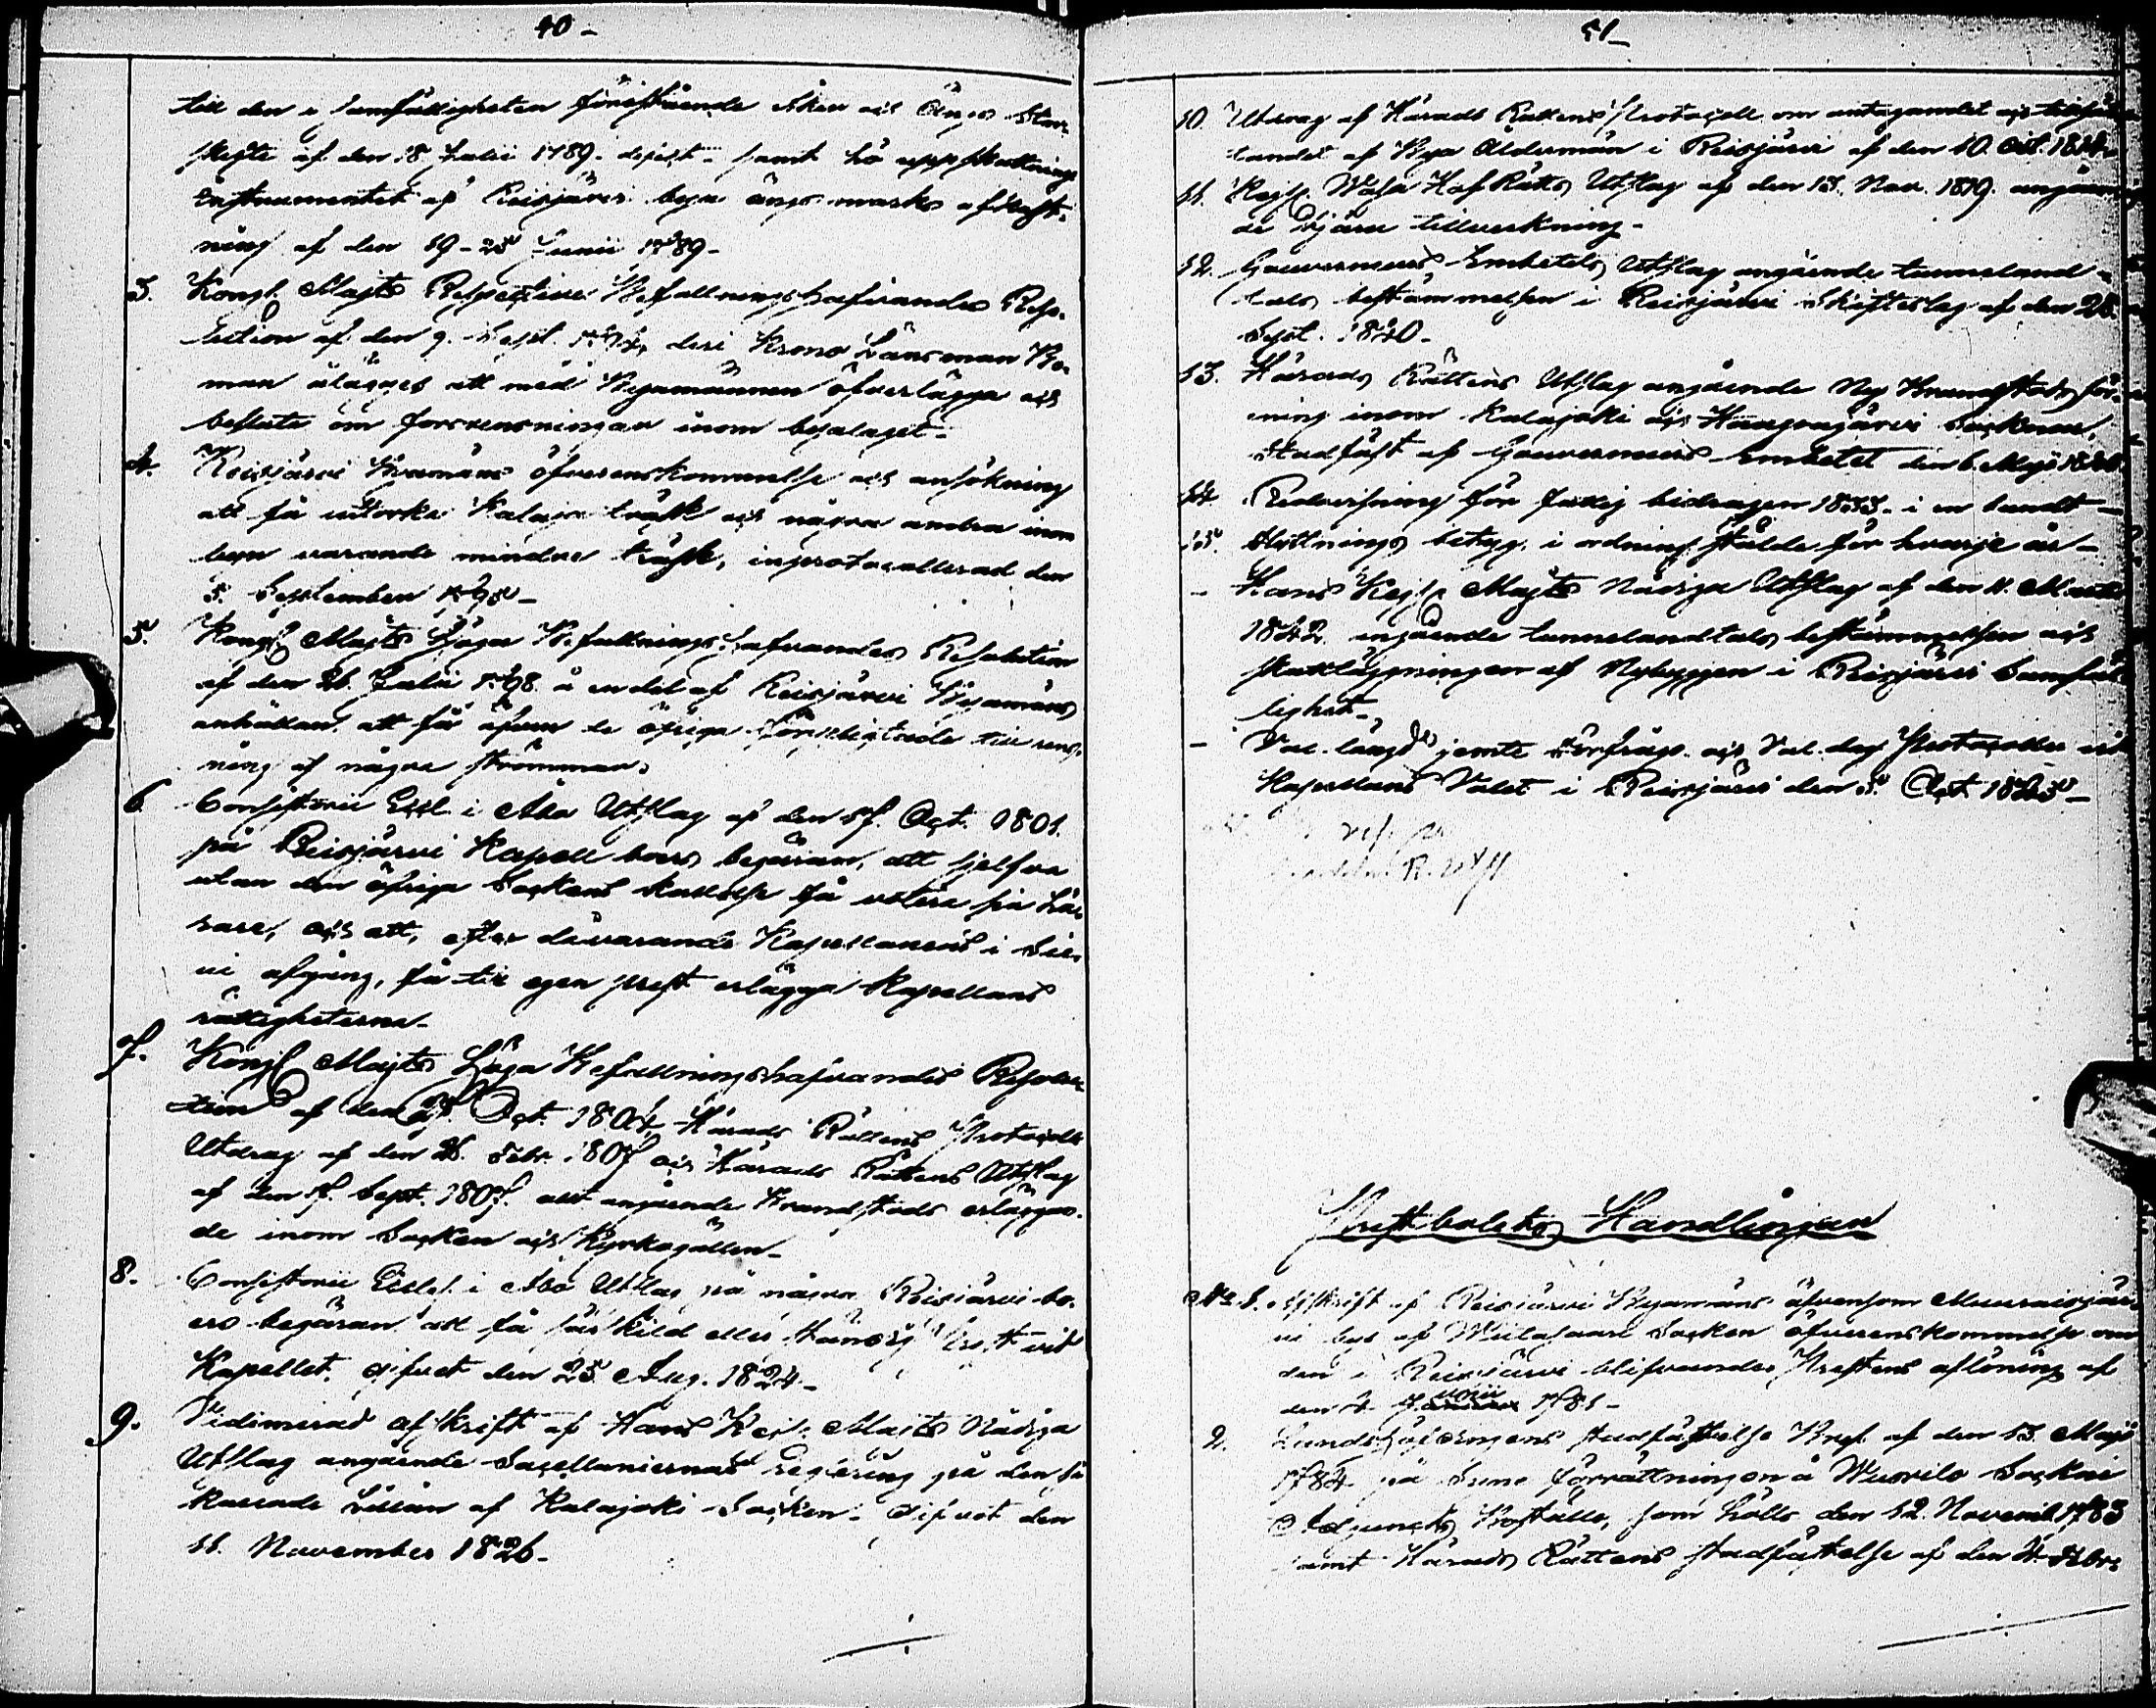 40-
till den i samfälligheten förestående åker och Ängs Stor-
skifte af den 18 Julii 1789. dejest. samt hö uppskattnings
Instrumentet af Reisjärvi byn ängs marks afkast-
ning af den 19-25 Junii 1789-
3. Kongl. Majts Respective Befallningshafvandes Reso-
lution af den 9. Sept. 1794, deri Krono Länsman Bo-
man ålägges att med Byamännen öfverlägga och
besluta om forsrensningar inom byalaget.
4. Reisjärvi Byamäns öfverenskommelse och ansökning
att få uttorka Kalaja träsk och några andra inom
byn varande mindre träsk, inprotocollerad den
5. September 1795-
5. Kongl Majts Höga Befallningshafvandes Resolution
af den 26. Julii 1798 å en del af Reisjärvi Byamäns
anhållan att få äfven de öfriga förpligtade till rens-
ning af några strömmar.
6. Consistorii Eccl. i Åbo Utslag af den 17. Oct. 1801.
på Reisjärvi Kapell boers begäran, att sjelfva
utan den öfriga Sockens kallelse få votera på Lä-
rare, och att, efter dåvarande Kapellanens i Sie-
vi afgång, få till egen prest erlägga Kapellans
rättigheterna-
7. Kongl Majts Höga Befallningshafvandes Resolu-
tion af den 27. Oct. 1804, Härads Rättens Protocolls
Utdrag af den 26. Febr. 1807 och Härads Rättens Utslag
af den 17. Sept. 1807. allt angående Brandstods erläggan-
de inom Socken och Kyrkogällen-
8. Consistorii Eccles. i Åbo Utslag på några Reisjärvi bo-
ers begäran att få särskild eller ständig Prest vid
Kapellet. gifvet den 25 Aug. 1824-
9. Vidimerad afskrift af Hans Kejs. Majts Nådiga
Utslag angående Sacellaniernas reglering på den så
kallade Lillån af Kalajoki Socken. Gifvet den
11. November 1826-
41-
10. Utdrag af Härads Rättens Protocoll om antagandet och
landet af Bya Ålderman i Reisjärvi af den 10. Oct. 18
11. Kejs. Wasa Hof Rätts Utslag af den 13. Nov. 1819. angåen-
de Tjäru tillverkning-
12. Gouverneurs Embetets Utslag angående tunneland-
tals bestämmelsen i Reisjärvi Skifteslag af den 28.
Sept. 1840-
13. Härads Rättens Utslag angående Ny Brandstods för-
ening inom Kalajoki och Haapajärvi Socknar,
Stadfäst af Gouverneurs Embetet den 6. Maji 18
14. Redovisning för fattig bidragen 1833. i en bundt-
15. Slottnings betyg. i ordning stälde för hvarje år-
- Hans Kejs. Majts Nådiga Utslag af den 11. Martii
1842. angående tunnelandtals bestämmelsen och
skattläggningen af Nybyggen i Reisjärvi Samfäl-
lighet-
- Val längd jemte Förfrågo- och Val dag Protocoller vid
Kapellans Valet i Reisjärvi den 5. Oct. 1845-
Prestbolets Handlingar
No 1. Afskrift af Reisjärvi Byamäns äfvensom Muuraisjär-
vi bys af Wiitasaari Socken öfverenskommelse om
den i Reisjärvi blifvande Prestens aflöning af
den 4. Junii 1781-
2. Landshöfdingens stadfästelse Bref af den 13. Maji
1784 på Syne förrättningen å Wuorila Sockne
Adjuncts Boställe, som hölls den 12. Novemb. 1783
samt Härads Rättens stadfästelse af den 4. Febr.